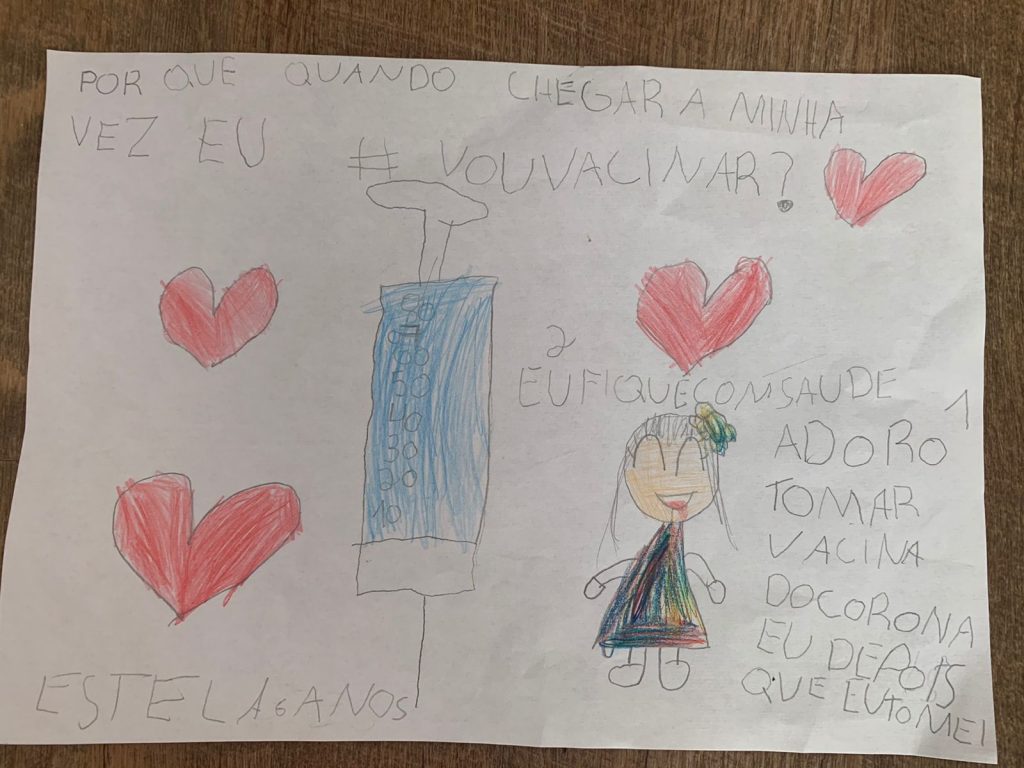 POR QUE QUANDO CHÉGAR A MINHA
VEZ EU # VOUVACINAR?
80
70
60
50
40
30
20
10
2
EU FIQUE COM SAUDE
1
ADORO
TOMAR
VACINA
DO CORONA
EU DEPOIS
QUE EU TOMEI
ESTELA 6 ANOS